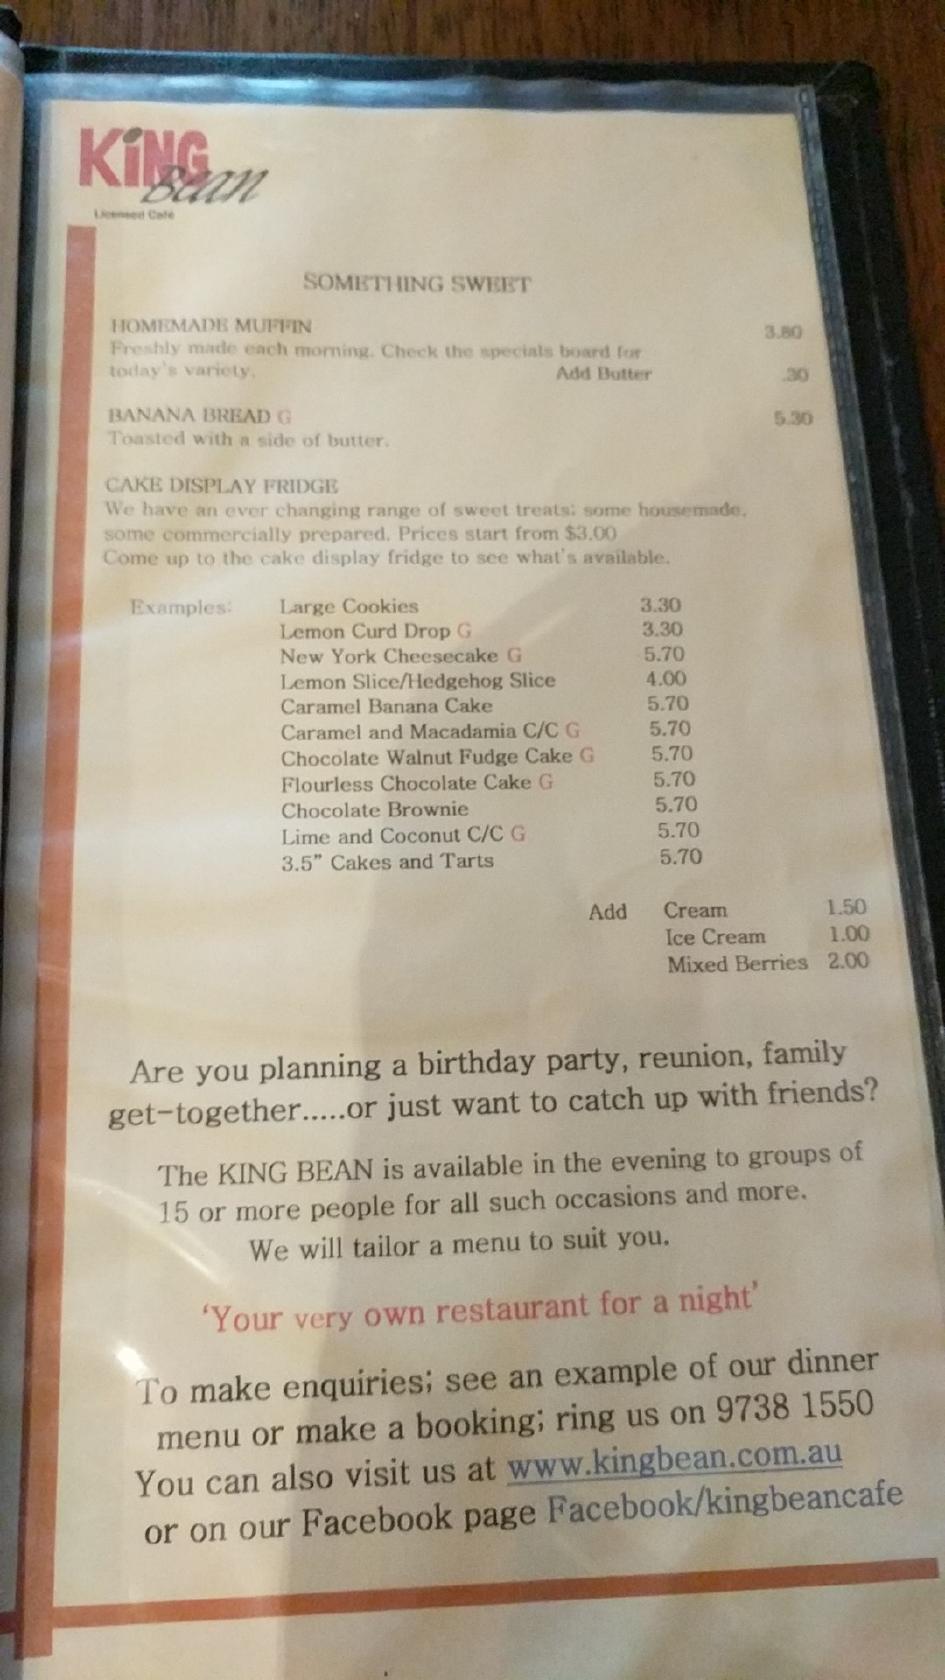 KiNG
Bean
Licensed Café
SOMETHING SWEET
HOMEMADE MUFFIN 3.80
Freshly made each morning. Check the specials board for
today's variety. Add Butter .30
BANANA BREAD G 5.30
Toasted with a side of butter.
CAKE DISPLAY FRIDGE
We have an ever changing range of sweet treats; some housemade,
some commercially prepared. Prices start from $3.00
Come up to the cake display fridge to see what's available.
Examples: Large Cookies 3.30
Lemon Curd Drop G 3.30
New York Cheesecake G 5.70
Lemon Slice/Hedgehog Slice 4.00
Caramel Banana Cake 5.70
Caramel and Macadamia C/C G 5.70
Chocolate Walnut Fudge Cake G 5.70
Flourless Chocolate Cake G 5.70
Chocolate Brownie 5.70
Lime and Coconut C/C G 5.70
3.5" Cakes and Tarts 5.70
Add Cream 1.50
Ice Cream 1.00
Mixed Berries 2.00
Are you planning a birthday party, reunion, family
get-together.....or just want to catch up with friends?
The KING BEAN is available in the evening to groups of
15 or more people for all such occasions and more.
We will tailor a menu to suit you.
'Your very own restaurant for a night'
To make enquiries; see an example of our dinner
menu or make a booking; ring us on 9738 1550
You can also visit us at www.kingbean.com.au
or on our Facebook page Facebook/kingbeancafe